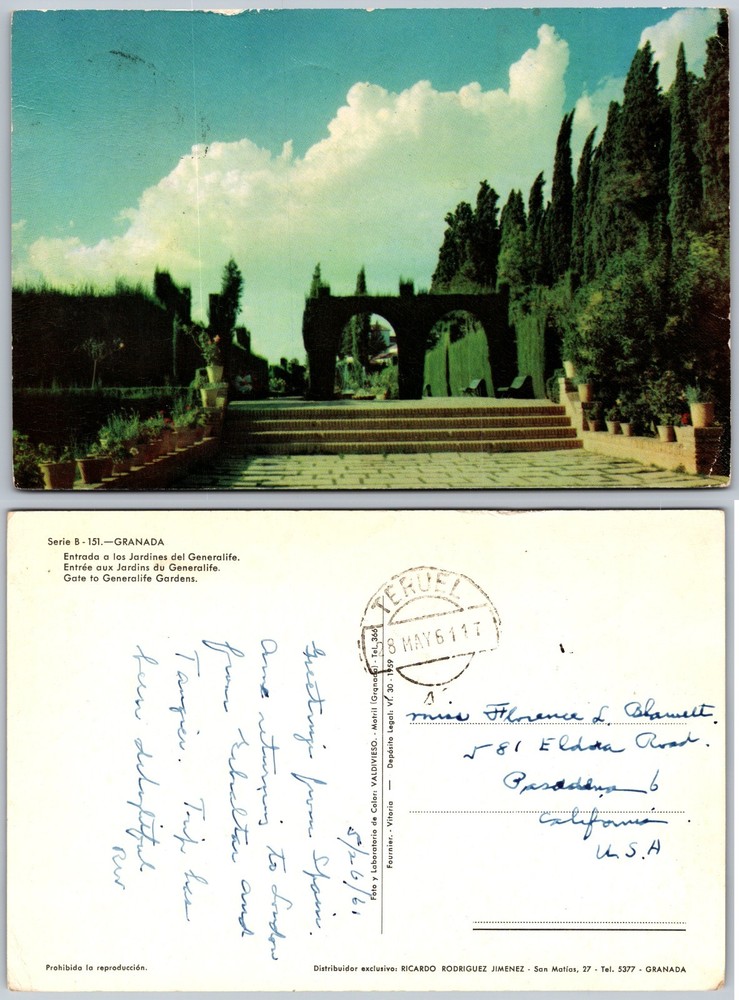 Serie B - 151.—GRANADA
Entrada a los Jardines del Generalife.
Entrée aux Jardins du Generalife.
Gate to Generalife Gardens.
TERUEL
28 MAY 61 17
5/26/61
Greetings from Spain.
Am returning to London
from Gibraltar and
Tangier. Trip has
been delightful
Foto y Laboratorio de Color: VALDIVIESO. - Motril (Granada) - Tel. 366
Fournier. - Vitoria — Depósito Legal: VI. 30 - 1959
Miss Florence L. Blawett.
581 Eldora Road.
Pasadena 6
California
U.S.A
Prohibida la reproducción.
Distribuidor exclusivo: RICARDO RODRIGUEZ JIMENEZ - San Matías, 27 - Tel. 5377 - GRANADA